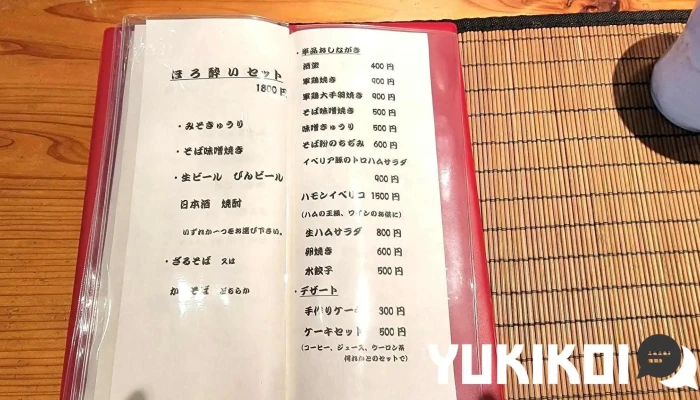 ほろ酔いセット
1800円
・みそきゅうり
・そば味噌焼き
・生ビール びんビール
日本酒 焼酎
いずれか一つをお選び下さい。
・ざるそば 又は
かけそば どちらか
・単品おしながき
酒盗 400円
軍鶏焼き 900円
軍鶏大手羽焼き 900円
そば味噌焼き 500円
味噌きゅうり 500円
そば粉のちぢみ 600円
イベリア豚のトロハムサラダ
900円
ハモンイベリコ 1500円
(ハムの王様、ワインのお供に)
生ハムサラダ 800円
卵焼き 600円
水餃子 500円
・デザート
手作りケーキ 300円
ケーキセット 500円
(コーヒー、ジュース、ウーロン茶
何れかとのセットで)
YUKIKOI